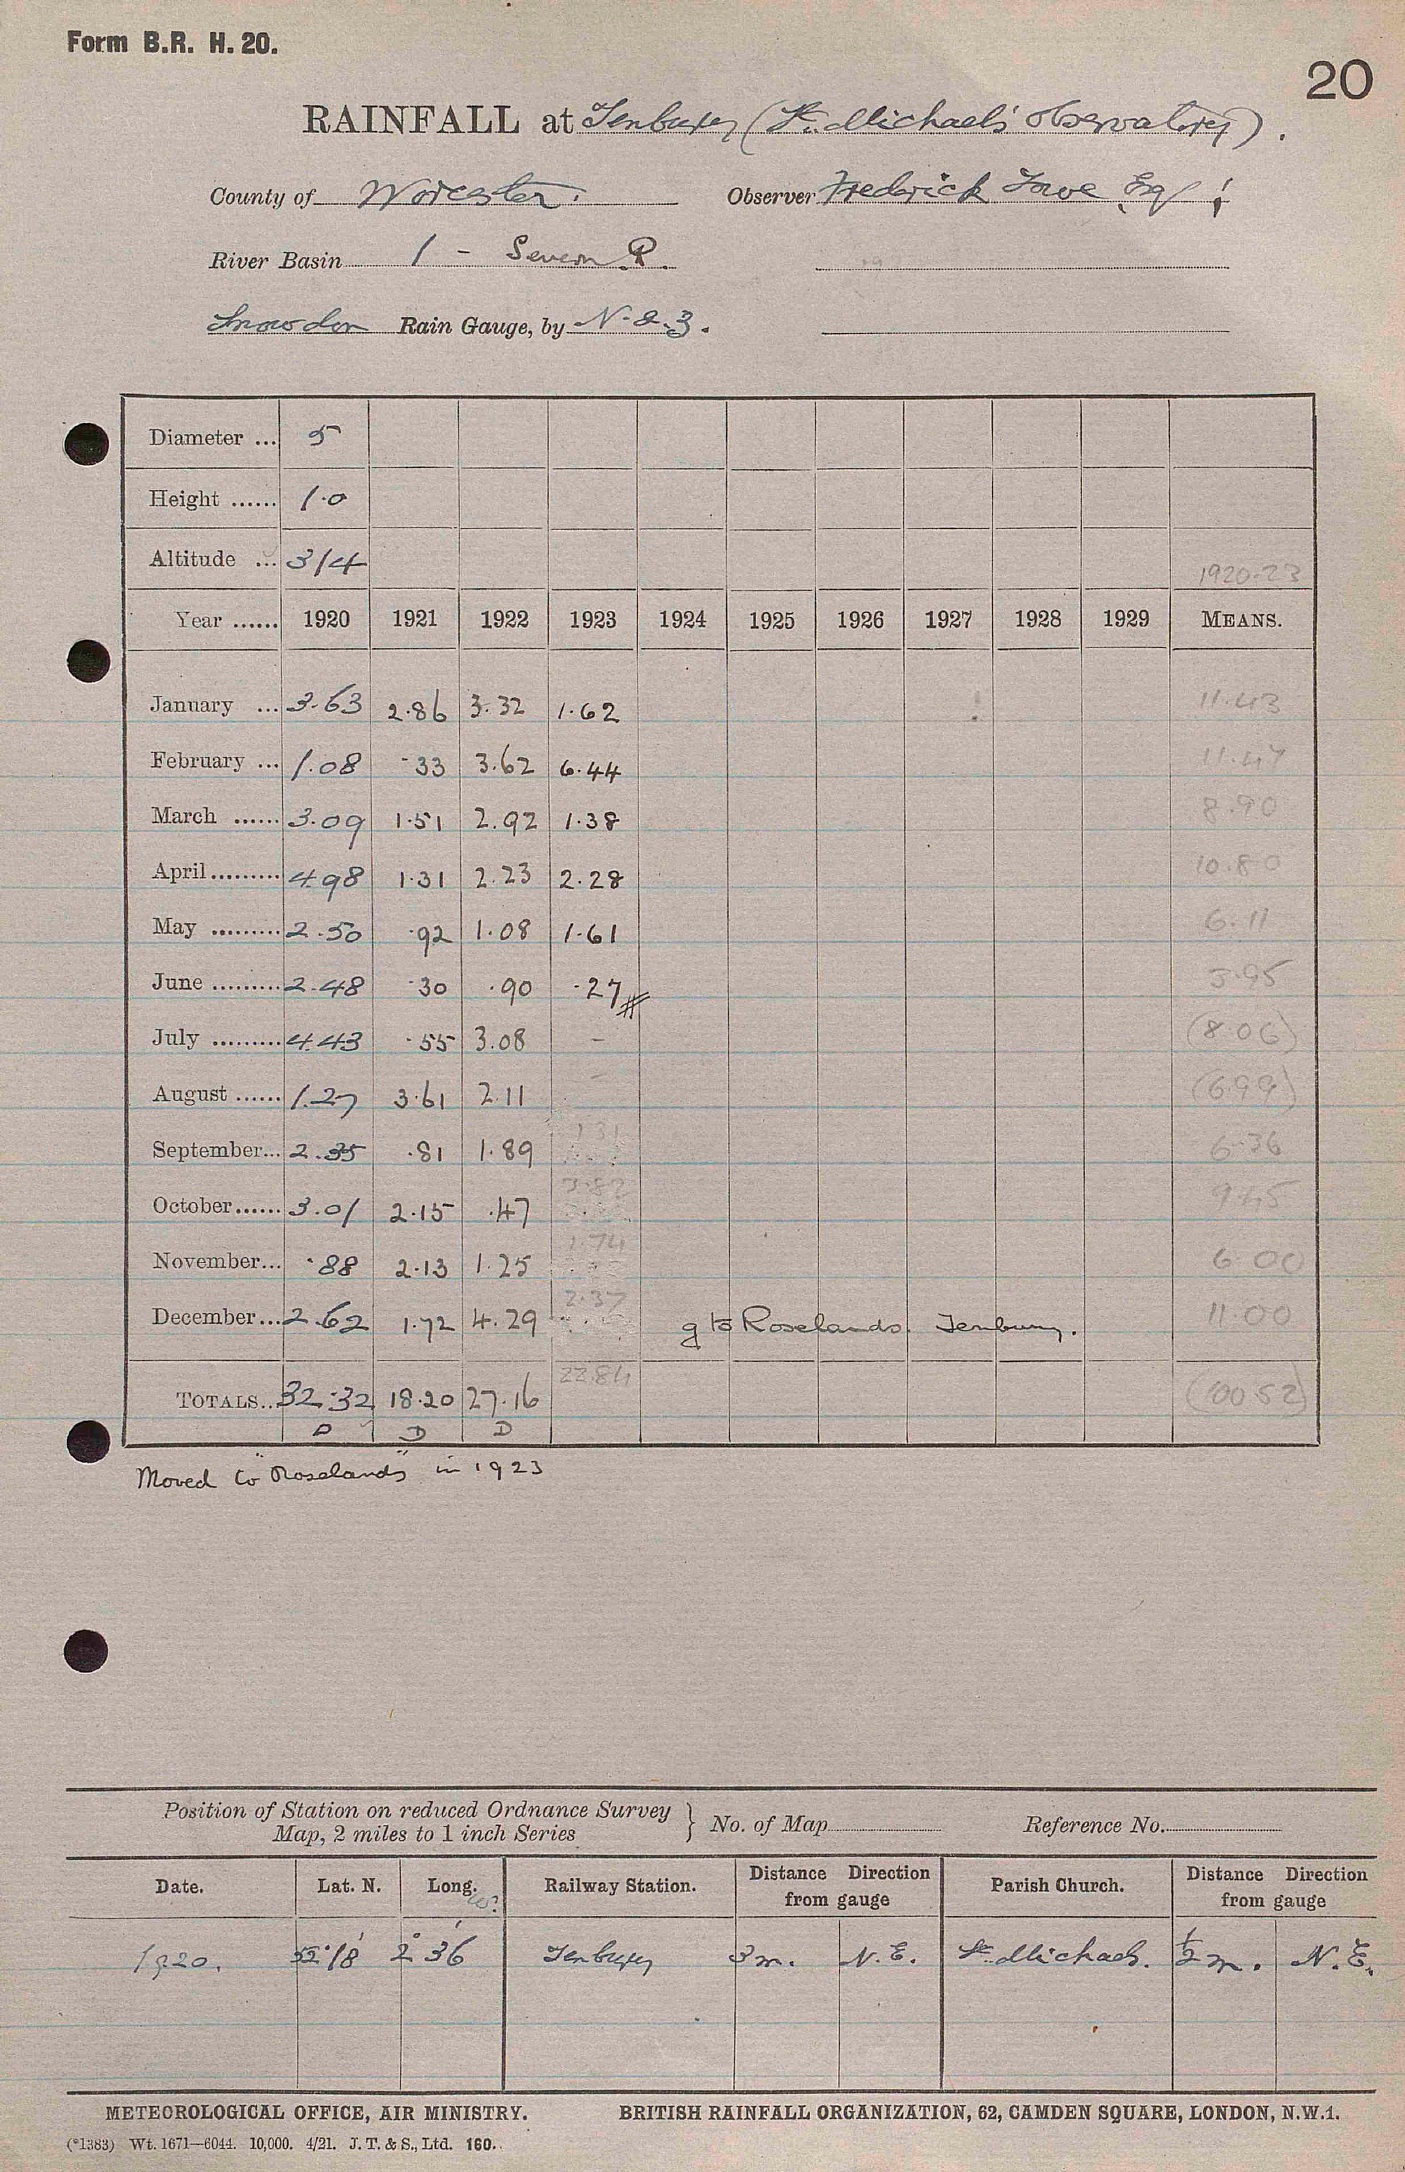 Form B.R. H. 20.
20
RAINFALL at Tenbury (St. Michael's Observatory).
County of Worcester. Observer Frederick Lowe Esq.
River Basin 1 - Severn R.
Snowdon Rain Gauge, by N. & Z.
Diameter ... 5
Height ...... 1.0
Altitude ... 314 1920-23
Year ...... 1920 1921 1922 1923 1924 1925 1926 1927 1928 1929 MEANS.
January ... 3.63 2.86 3.32 1.62 11.43
February ... 1.08 .33 3.62 6.44 11.47
March ...... 3.09 1.51 2.92 1.38 8.90
April ......... 4.98 1.31 2.23 2.28 10.80
May ......... 2.50 .92 1.08 1.61 6.11
June ......... 2.48 .30 .90 .27 3.95
July ......... 4.43 .55 3.08 – (8.06)
August ...... 1.27 3.61 2.11 – (6.99)
September... 2.35 .81 1.89 1.31 6.36
October...... 3.01 2.15 .47 3.82 9.45
November... .88 2.13 1.25 1.74 6.00
December... 2.62 1.72 4.29 2.37 g to Roselands. Tenbury. 11.00
TOTALS.. 32.32 18.20 27.16 22.84 (100.52)
D D D
Moved to "Roselands" in 1923
Position of Station on reduced Ordnance Survey
Map, 2 miles to 1 inch Series } No. of Map Reference No.
Date. Lat. N. Long. W? Railway Station. Distance Direction from gauge Parish Church. Distance Direction from gauge
1920. 52° 18' 2° 36' Tenbury 3 m. N.E. St. Michaels. ½ m. N.E.
METEOROLOGICAL OFFICE, AIR MINISTRY. BRITISH RAINFALL ORGANIZATION, 62, CAMDEN SQUARE, LONDON, N.W.1.
(*1383) Wt. 1671—6044. 10,000. 4/21. J. T. & S., Ltd. 160.